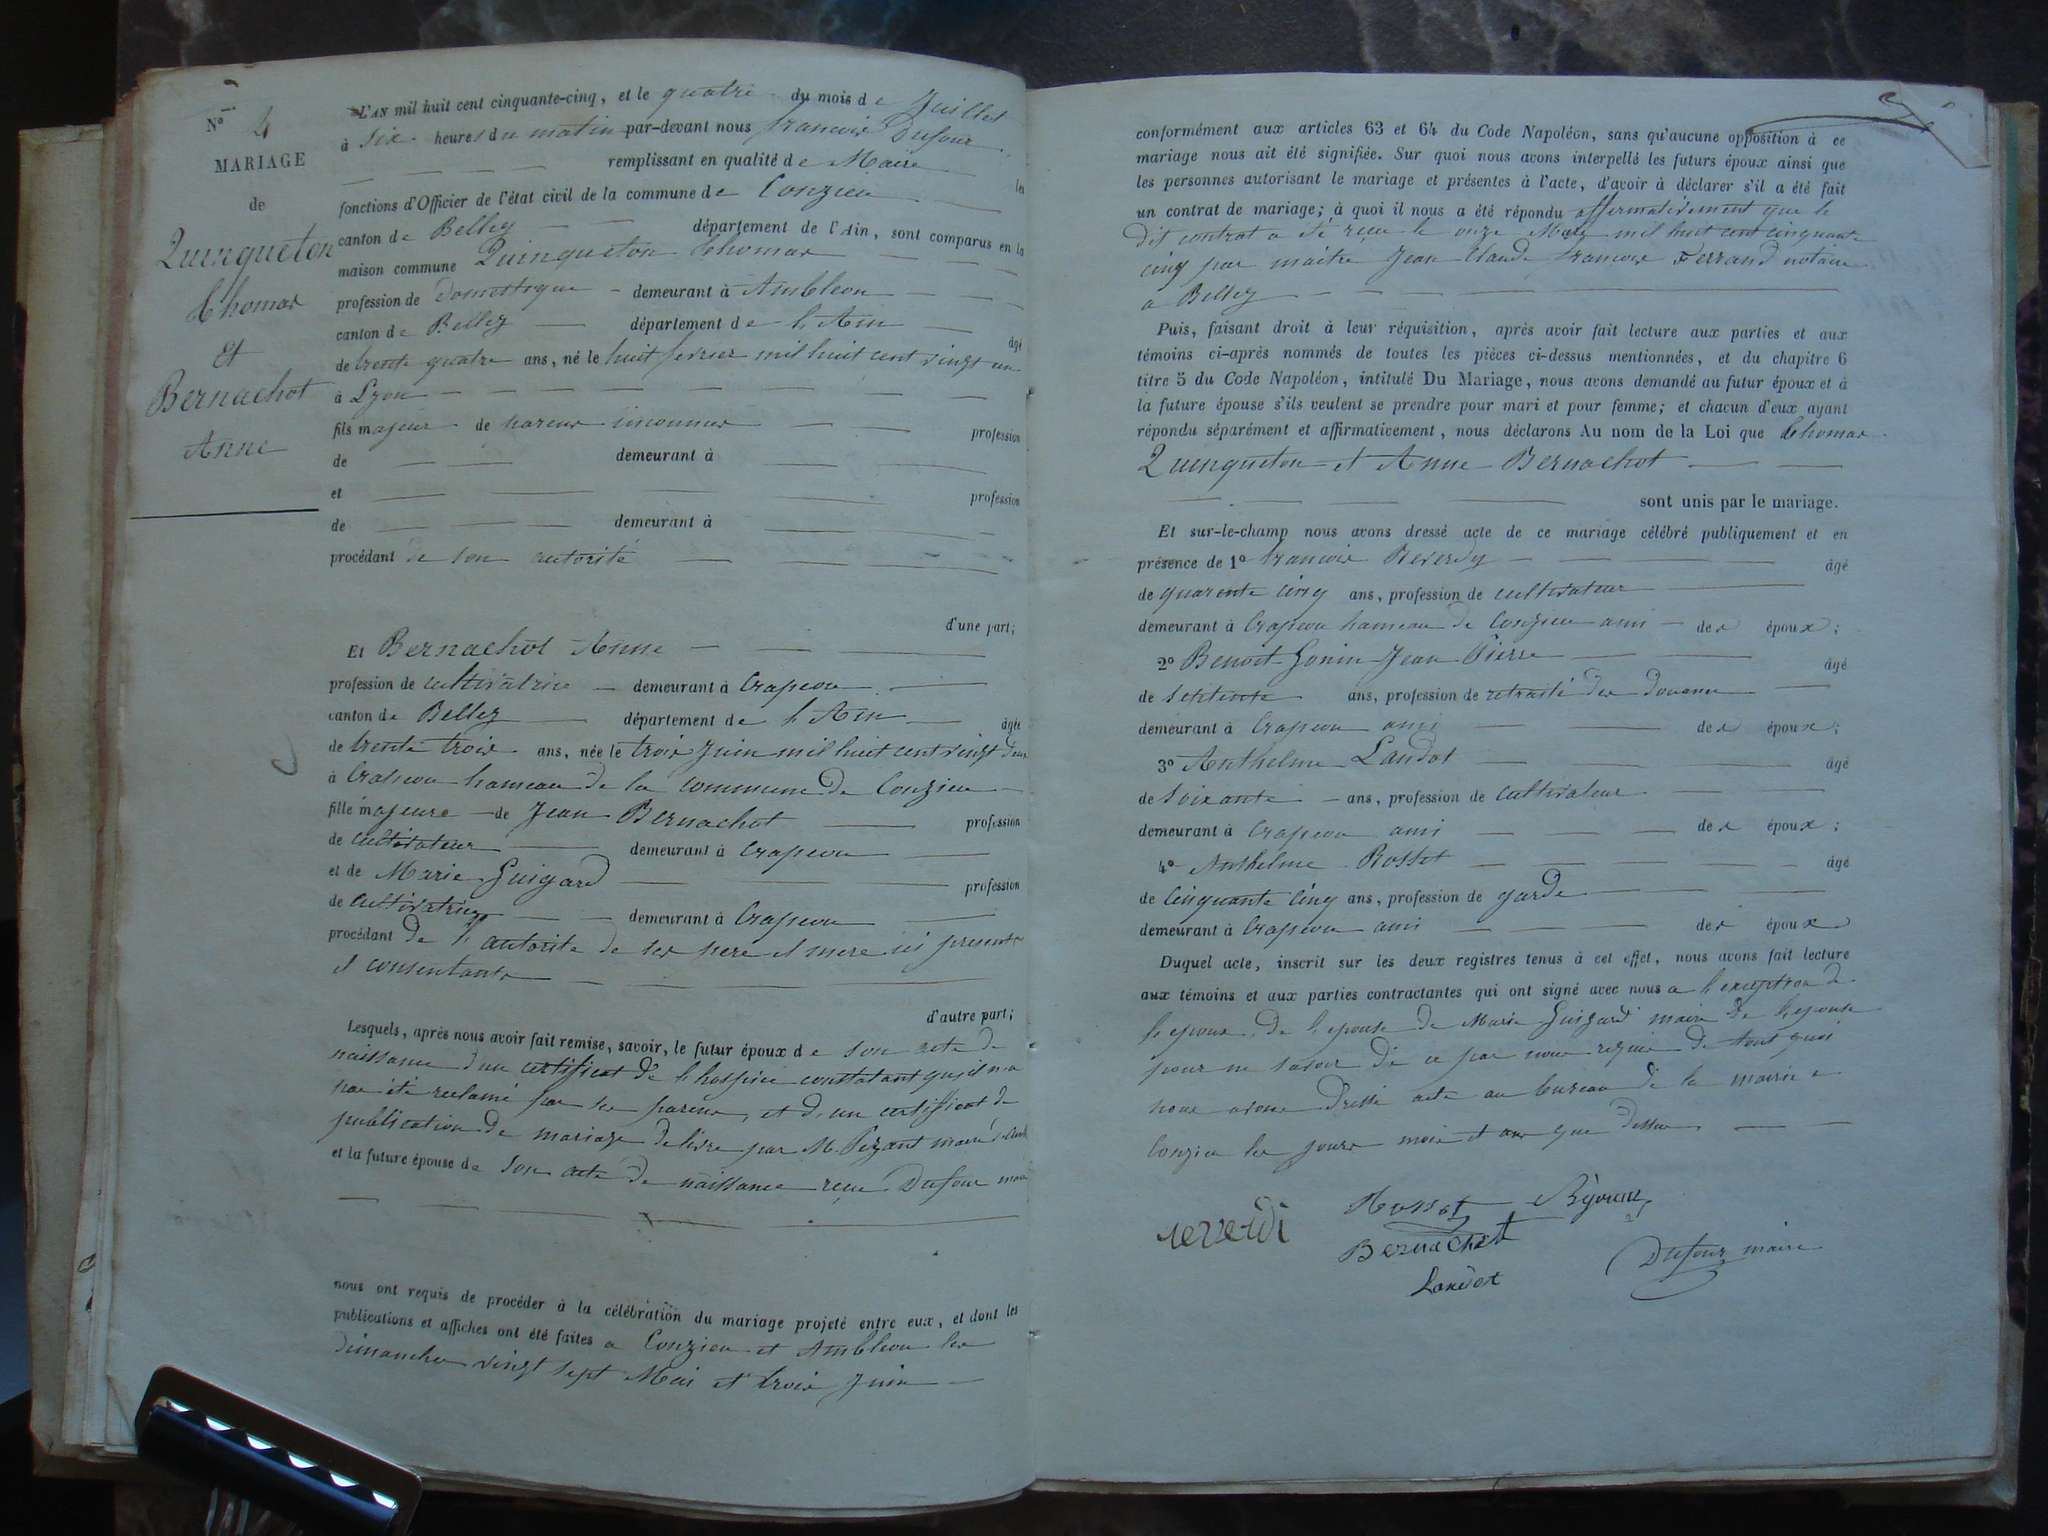 N° 4
MARIAGE
de
Quinqueton
Thomas
Et
Bernachot
Anne
L'AN mil huit cent cinquante-cinq, et le quatre du mois de Juillet
à six heures du matin par-devant nous francois Dufour
remplissant en qualité de Maire les
fonctions d'Officier de l'état civil de la commune de Conzieu
canton de Belley département de l'Ain, sont comparus en la
maison commune Quinqueton Thomas
profession de Domestique demeurant à Ambleon
canton de Belley département de l'Ain âgé
de trente quatre ans, né le huit fevrier mil huit cent vingt un
à Lyon
fils majeur de parens inconnus profession
de demeurant à
et profession
de demeurant à
procédant de son autorité
d'une part;
Et Bernachot Anne
profession de cultivatrice demeurant à Crapeou
canton de Belley département de l'Ain âgée
de trente trois ans, née le trois Juin mil huit cent vingt deux
à Crapeou hameau de la commune de Conzieu
fille majeure de Jean Bernachot profession
de cultivateur demeurant à Crapeou
et de Marie Guigard profession
de cultivatrice demeurant à Crapeou
procédant de l'autorité de ses pere et mere ici presents
et consentants
d'autre part;
Lesquels, après nous avoir fait remise, savoir, le futur époux de son acte de
naissance d'un certificat de l'hospice constatant qu'il n'a
pas été reclamé par ses parens, et d'un certificat de
publication de mariage delivré par M. Pezant maire d'
et la future épouse de son acte de naissance reçu Dufour maire
nous ont requis de procéder à la célébration du mariage projeté entre eux, et dont les
publications et affiches ont été faites a Conzieu et Ambleon les
dimanches vingt sept Mai et trois Juin
conformément aux articles 63 et 64 du Code Napoléon, sans qu'aucune opposition à ce
mariage nous ait été signifiée. Sur quoi nous avons interpellé les futurs époux ainsi que
les personnes autorisant le mariage et présentes à l'acte, d'avoir à déclarer s'il a été fait
un contrat de mariage; à quoi il nous a été répondu affirmativement que le
dit contrat a été reçu le onze Mars mil huit cent cinquante
cinq par maitre Jean Claude francois Ferrand notaire
a Belley
Puis, faisant droit à leur réquisition, après avoir fait lecture aux parties et aux
témoins ci-après nommés de toutes les pièces ci-dessus mentionnées, et du chapitre 6
titre 5 du Code Napoléon, intitulé Du Mariage, nous avons demandé au futur époux et à
la future épouse s'ils veulent se prendre pour mari et pour femme; et chacun d'eux ayant
répondu séparément et affirmativement, nous déclarons Au nom de la Loi que Thomas
Quinqueton et Anne Bernachot
sont unis par le mariage.
Et sur-le-champ nous avons dressé acte de ce mariage célébré publiquement et en
présence de 1° francois Reverdy âgé
de quarente cinq ans, profession de cultivateur
demeurant à Crapeou hameau de Conzieu ami des époux;
2° Benoit Gonin Jean Pierre âgé
de septente ans, profession de retraité des douanes
demeurant à Crapeou ami des époux;
3° Anthelme Landot âgé
de Soixante ans, profession de cultivateur
demeurant à Crapeou ami des époux;
4° Anthelme Rosset âgé
de cinquante cinq ans, profession de garde
demeurant à Crapeou ami des époux
Duquel acte, inscrit sur les deux registres tenus à cet effet, nous avons fait lecture
aux témoins et aux parties contractantes qui ont signé avec nous a l'exception de
l'epoux de l'epouse de Marie Guigard maire de l'epouse
pour ne savoir de ce par nous requis de tout quoi
nous avons dressé acte au bureau de la mairie a
Conzieu les jours mois et an que dessus
reverdi
Rosset
Bernachot
Landot
Dufour maire